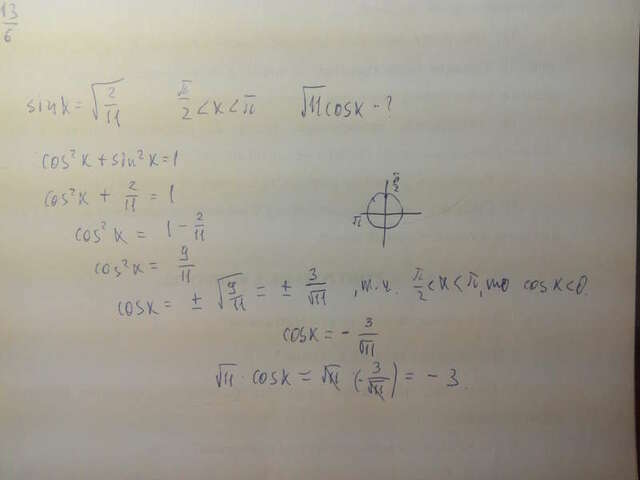 13/6
sinx = √(2/11)   π/2 < x < π   √11 cosx - ?
cos²x + sin²x = 1
cos²x + 2/11 = 1
cos²x = 1 - 2/11
cos²x = 9/11
cosx = ± √(9/11) = ± 3/√11 , т.к. π/2 < x < π, то cosx < 0.
π/2
π
cosx = - 3/√11
√11 · cosx = √11 · (- 3/√11) = - 3.